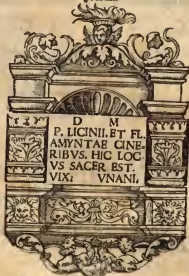 D M
P. LICINII. ET FL.
AMYNTAE CINE-
RIBVS. HIC LOC-
VS SACER EST.
VIX: VNANI.